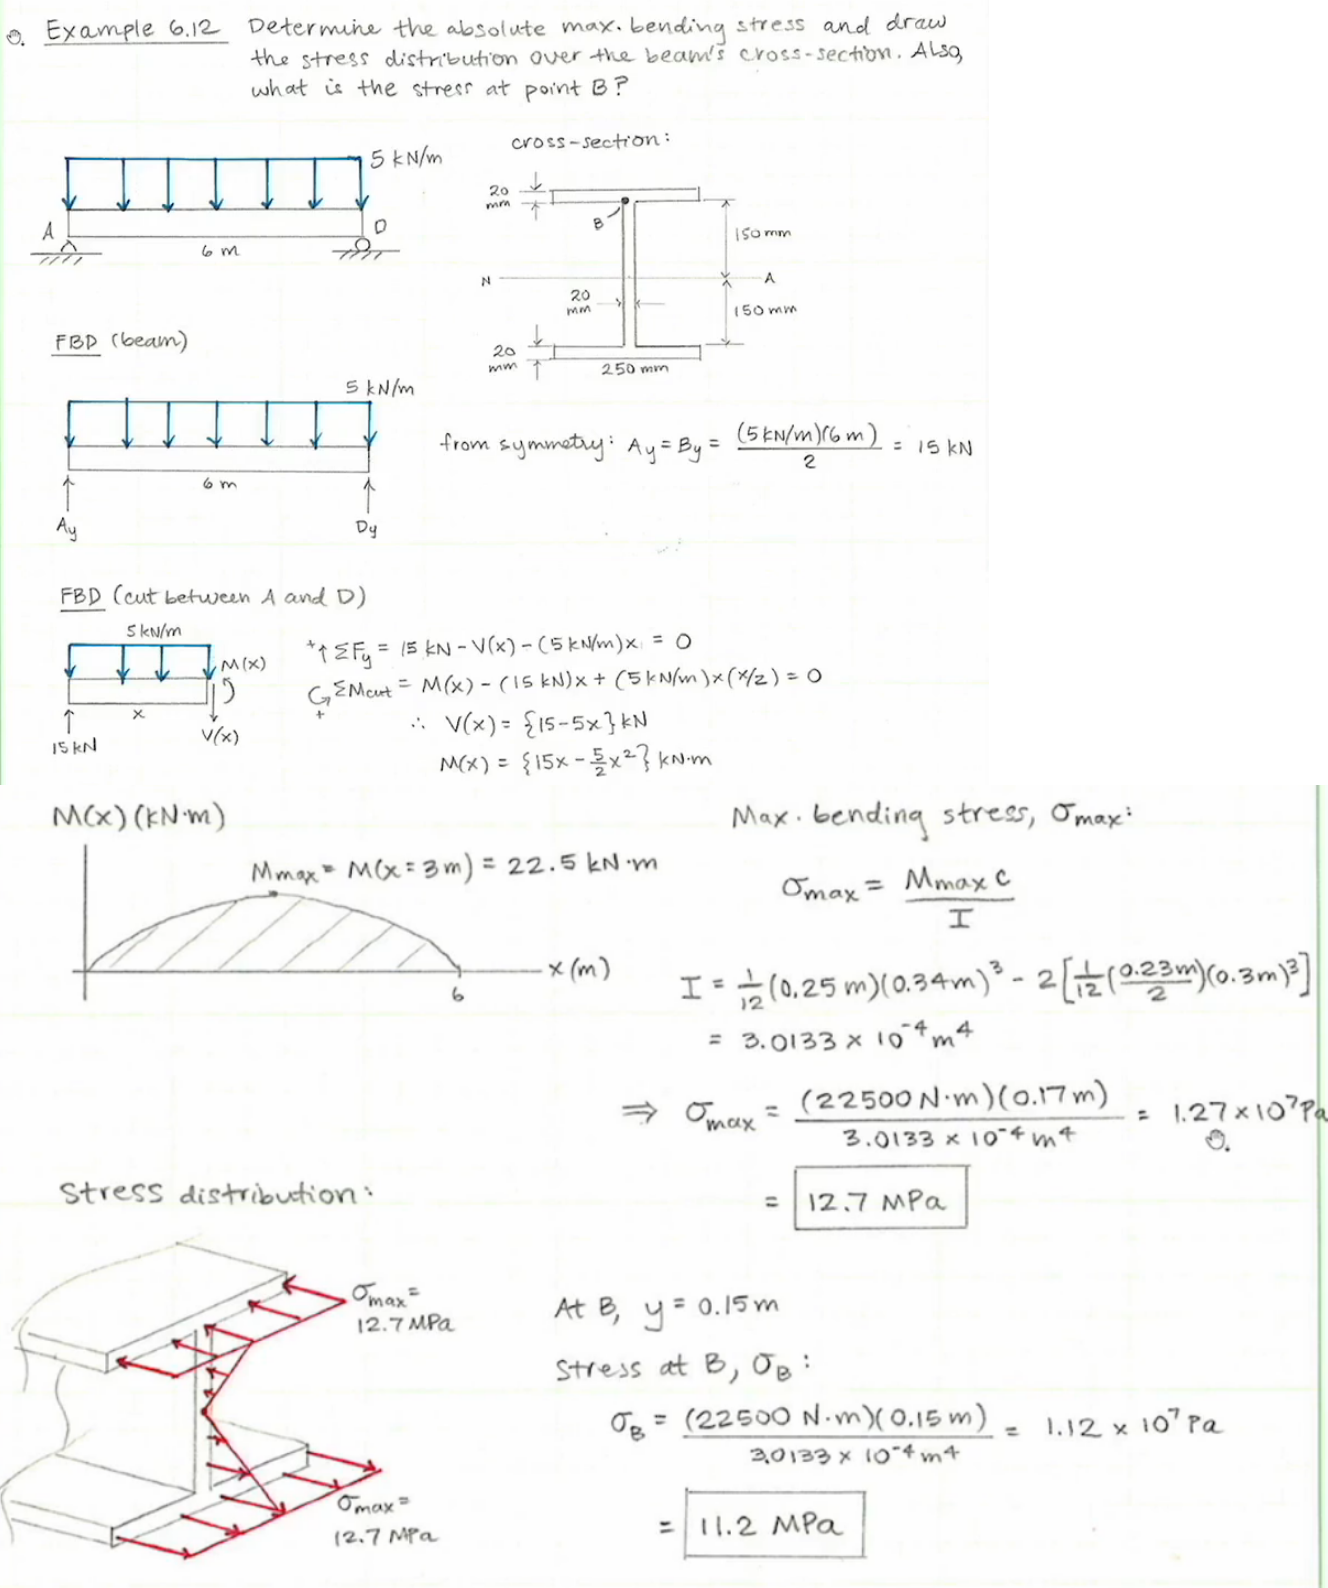 Example 6.12 Determine the absolute max. bending stress and draw
the stress distribution over the beam's cross-section. Also,
what is the stress at point B?
cross-section:
5 kN/m
A
D
6 m
20
mm
B
150 mm
N
A
20
mm
150 mm
20
mm
250 mm
FBD (beam)
5 kN/m
6 m
Ay
Dy
from symmetry: Ay = By = (5 kN/m)(6 m) / 2 = 15 kN
FBD (cut between A and D)
5 kN/m
M(x)
x
15 kN
V(x)
+↑ ΣFy = 15 kN - V(x) - (5 kN/m)x = 0
+ ΣMcut = M(x) - (15 kN)x + (5 kN/m)x(x/2) = 0
∴ V(x) = {15-5x} kN
M(x) = {15x - 5/2 x²} kN·m
M(x) (kN·m)
Mmax = M(x=3m) = 22.5 kN·m
x (m)
6
Max. bending stress, σmax:
σmax = Mmax c / I
I = 1/12 (0.25 m)(0.34m)³ - 2[1/12 (0.23m/2)(0.3m)³]
= 3.0133 x 10⁻⁴ m⁴
⇒ σmax = (22500 N·m)(0.17m) / 3.0133 x 10⁻⁴ m⁴ = 1.27 x 10⁷ Pa
= 12.7 MPa
Stress distribution:
σmax =
12.7 MPa
σmax =
12.7 MPa
At B, y = 0.15m
Stress at B, σB:
σB = (22500 N·m)(0.15m) / 3.0133 x 10⁻⁴ m⁴ = 1.12 x 10⁷ Pa
= 11.2 MPa